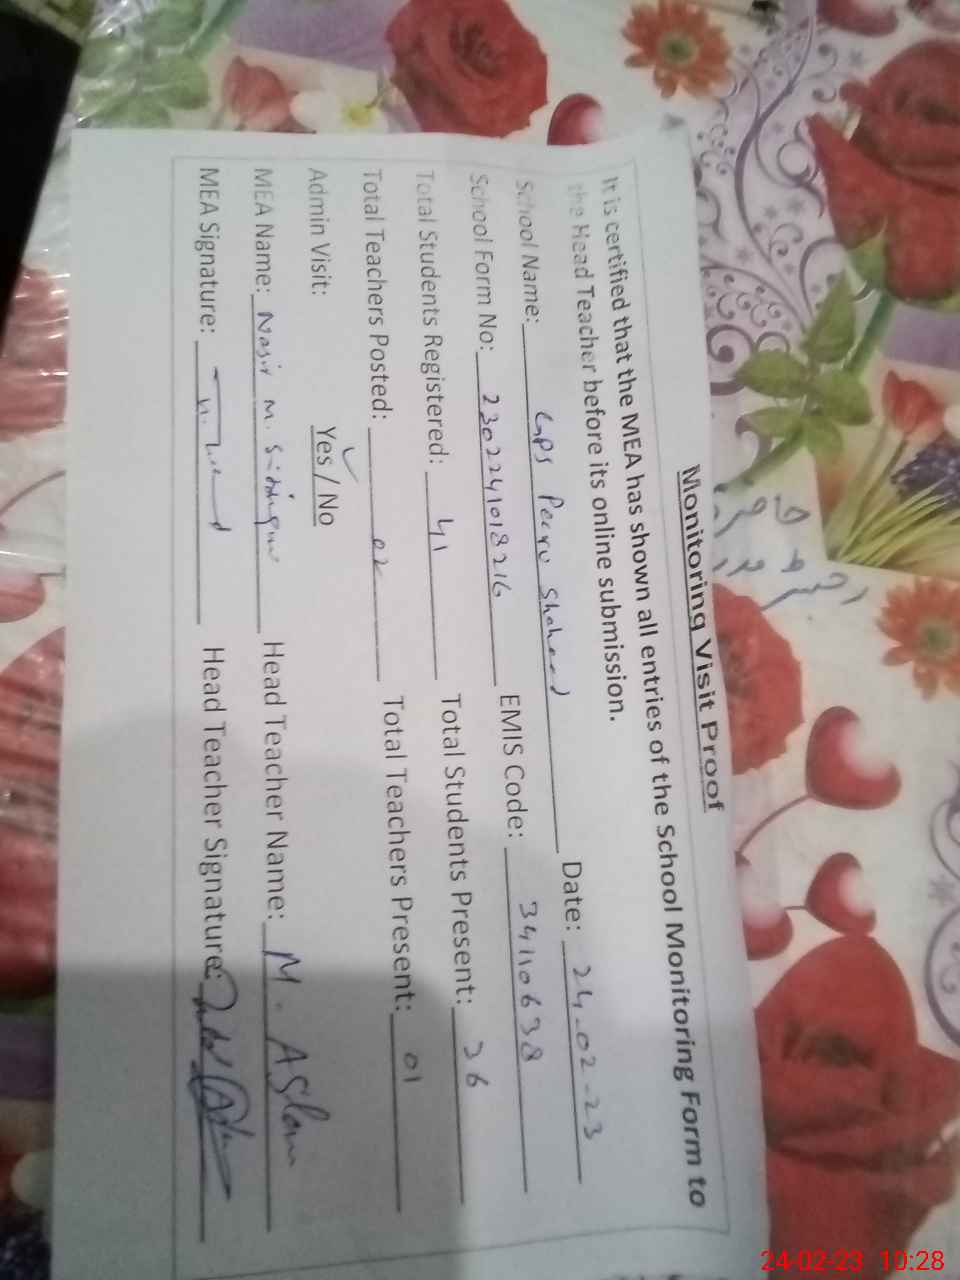 Monitoring Visit Proof
It is certified that the MEA has shown all entries of the School Monitoring Form to
the Head Teacher before its online submission.
School Name: GPS Peeru Shaheed Date: 24-02-23
School Form No: 2302241018216 EMIS Code: 34110638
Total Students Registered: 41 Total Students Present: 36
Total Teachers Posted: 02 Total Teachers Present: 01
Admin Visit: Yes / No
MEA Name: Nasir M. Head Teacher Name: M. Aslam
MEA Signature: Head Teacher Signature:
24-02-23 10:28